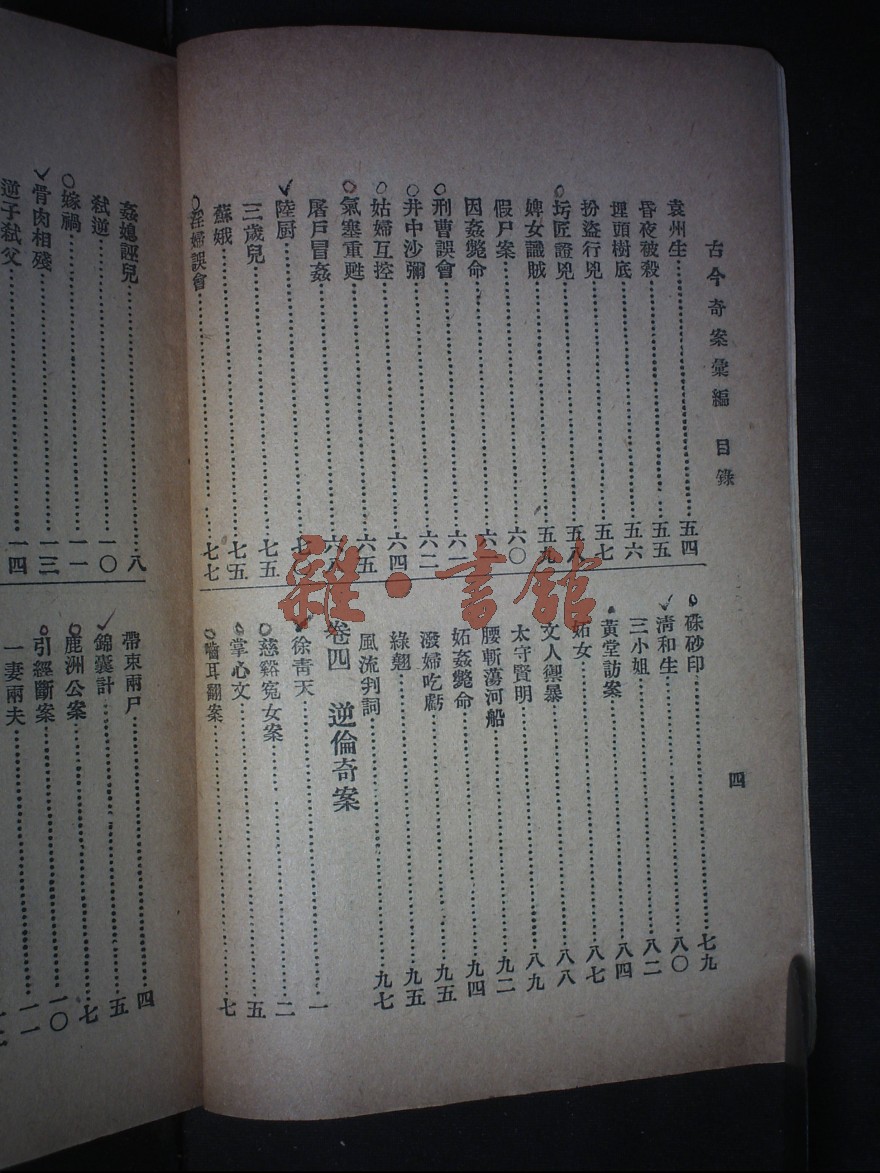 古今奇案彙編 目錄
四
袁州生 五四
昏夜被殺 五五
埋頭樹底 五六
扮盜行兇 五七
圬匠證兇 五八
婢女識賊 五九
假尸案 六〇
因姦斃命 六一
刑曹誤會 六一
井中沙彌 六二
姑婦互控 六四
氣塞重甦 六五
屠戶冒姦 六八
陸厨 七〇
三歲兒 七五
蘇娥 七五
淫婦誤會 七七
硃砂印 七九
淸和生 八〇
三小姐 八二
黃堂訪案 八四
妬女 八七
文人禦暴 八八
太守賢明 八九
腰斬蕩河船 九二
妬姦斃命 九四
潑婦吃虧 九五
綠翹 九五
風流判詞 九七
卷四 逆倫奇案
徐靑天 一
慈谿冤女案 二
掌心文 五
嚙耳翻案 七
姦媳誣兒 八
弒逆 一〇
嫁禍 一一
骨肉相殘 一三
逆子弒父 一四
帶束兩尸 四
錦囊計 五
鹿洲公案 七
引經斷案 一〇
一妻兩夫 一一
雜·書館